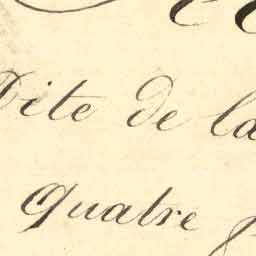 Dite de la
quatre